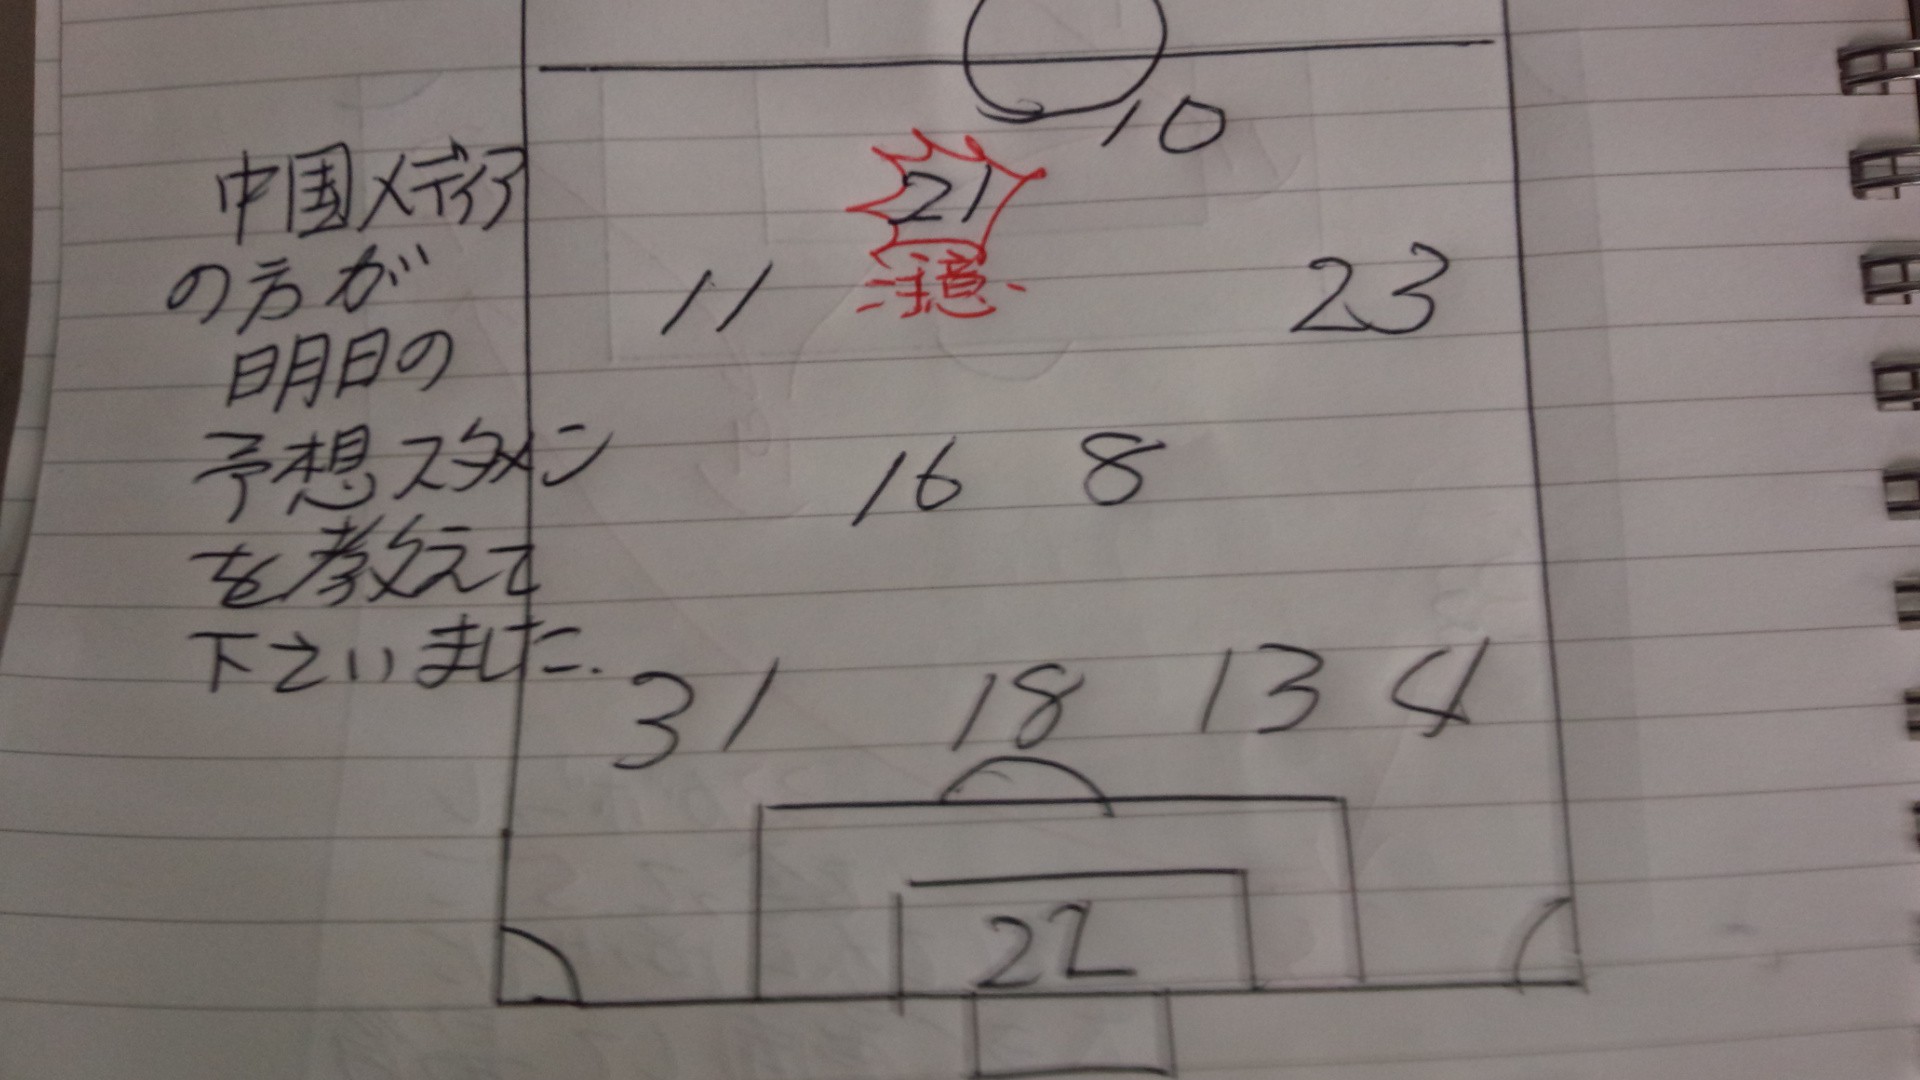 中国メディア
の方が
明日の
予想スタメン
を教えて
下さいました.
10
21
注意
11 23
16 8
31 18 13 4
22